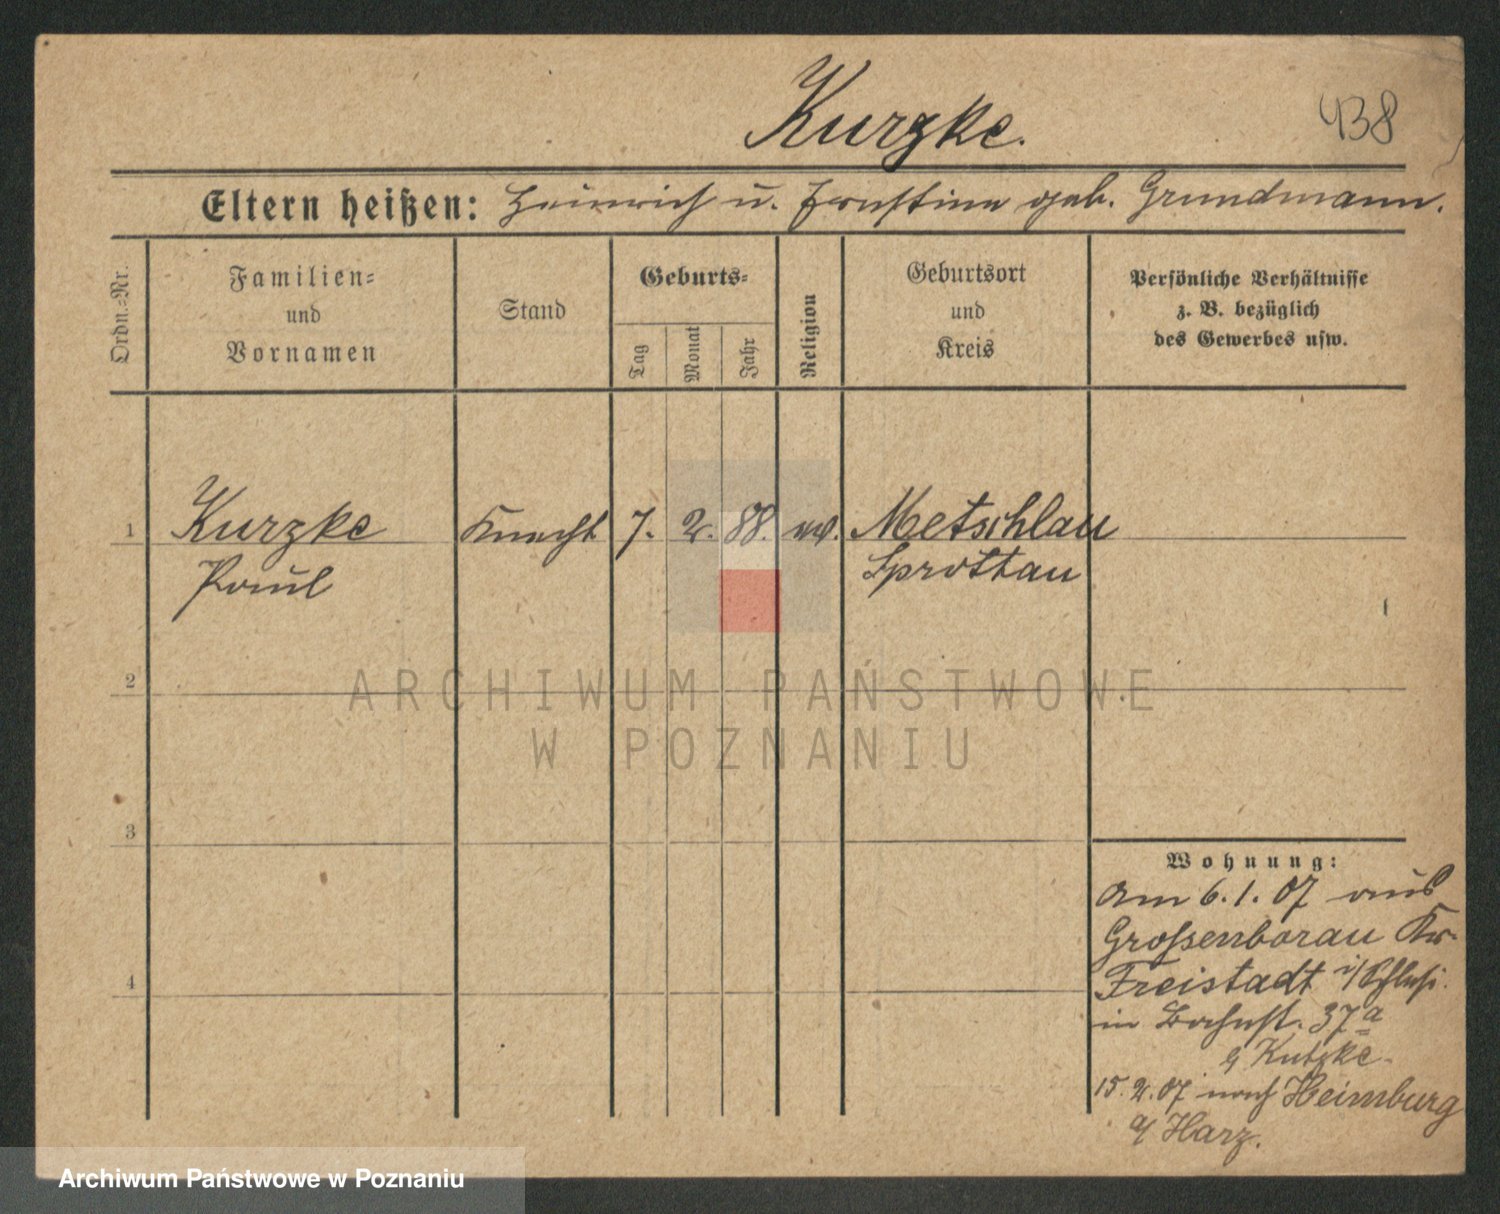 Kurzke.
438
Eltern heißen: Heinrich u. Ernstine geb. Grundmann.
Ordn.-Nr.
Familien-
und
Vornamen
Stand
Geburts-
Tag
Monat
Jahr
Religion
Geburtsort
und
Kreis
Persönliche Verhältnisse
z. B. bezüglich
des Gewerbes usw.
1
Kurzke
Paul
Knecht
7.
2.
88.
ev.
Metschlau
Sprottau
2
3
4
Wohnung:
Am 6.1.07 aus
Grossenborau Kr.
Freistadt i/Schles.
in Bahnst. 37a
b/ Kutzke
15.2.07 nach Heimburg
a/ Harz.
ARCHIWUM PAŃSTWOWE
W POZNANIU
Archiwum Państwowe w Poznaniu